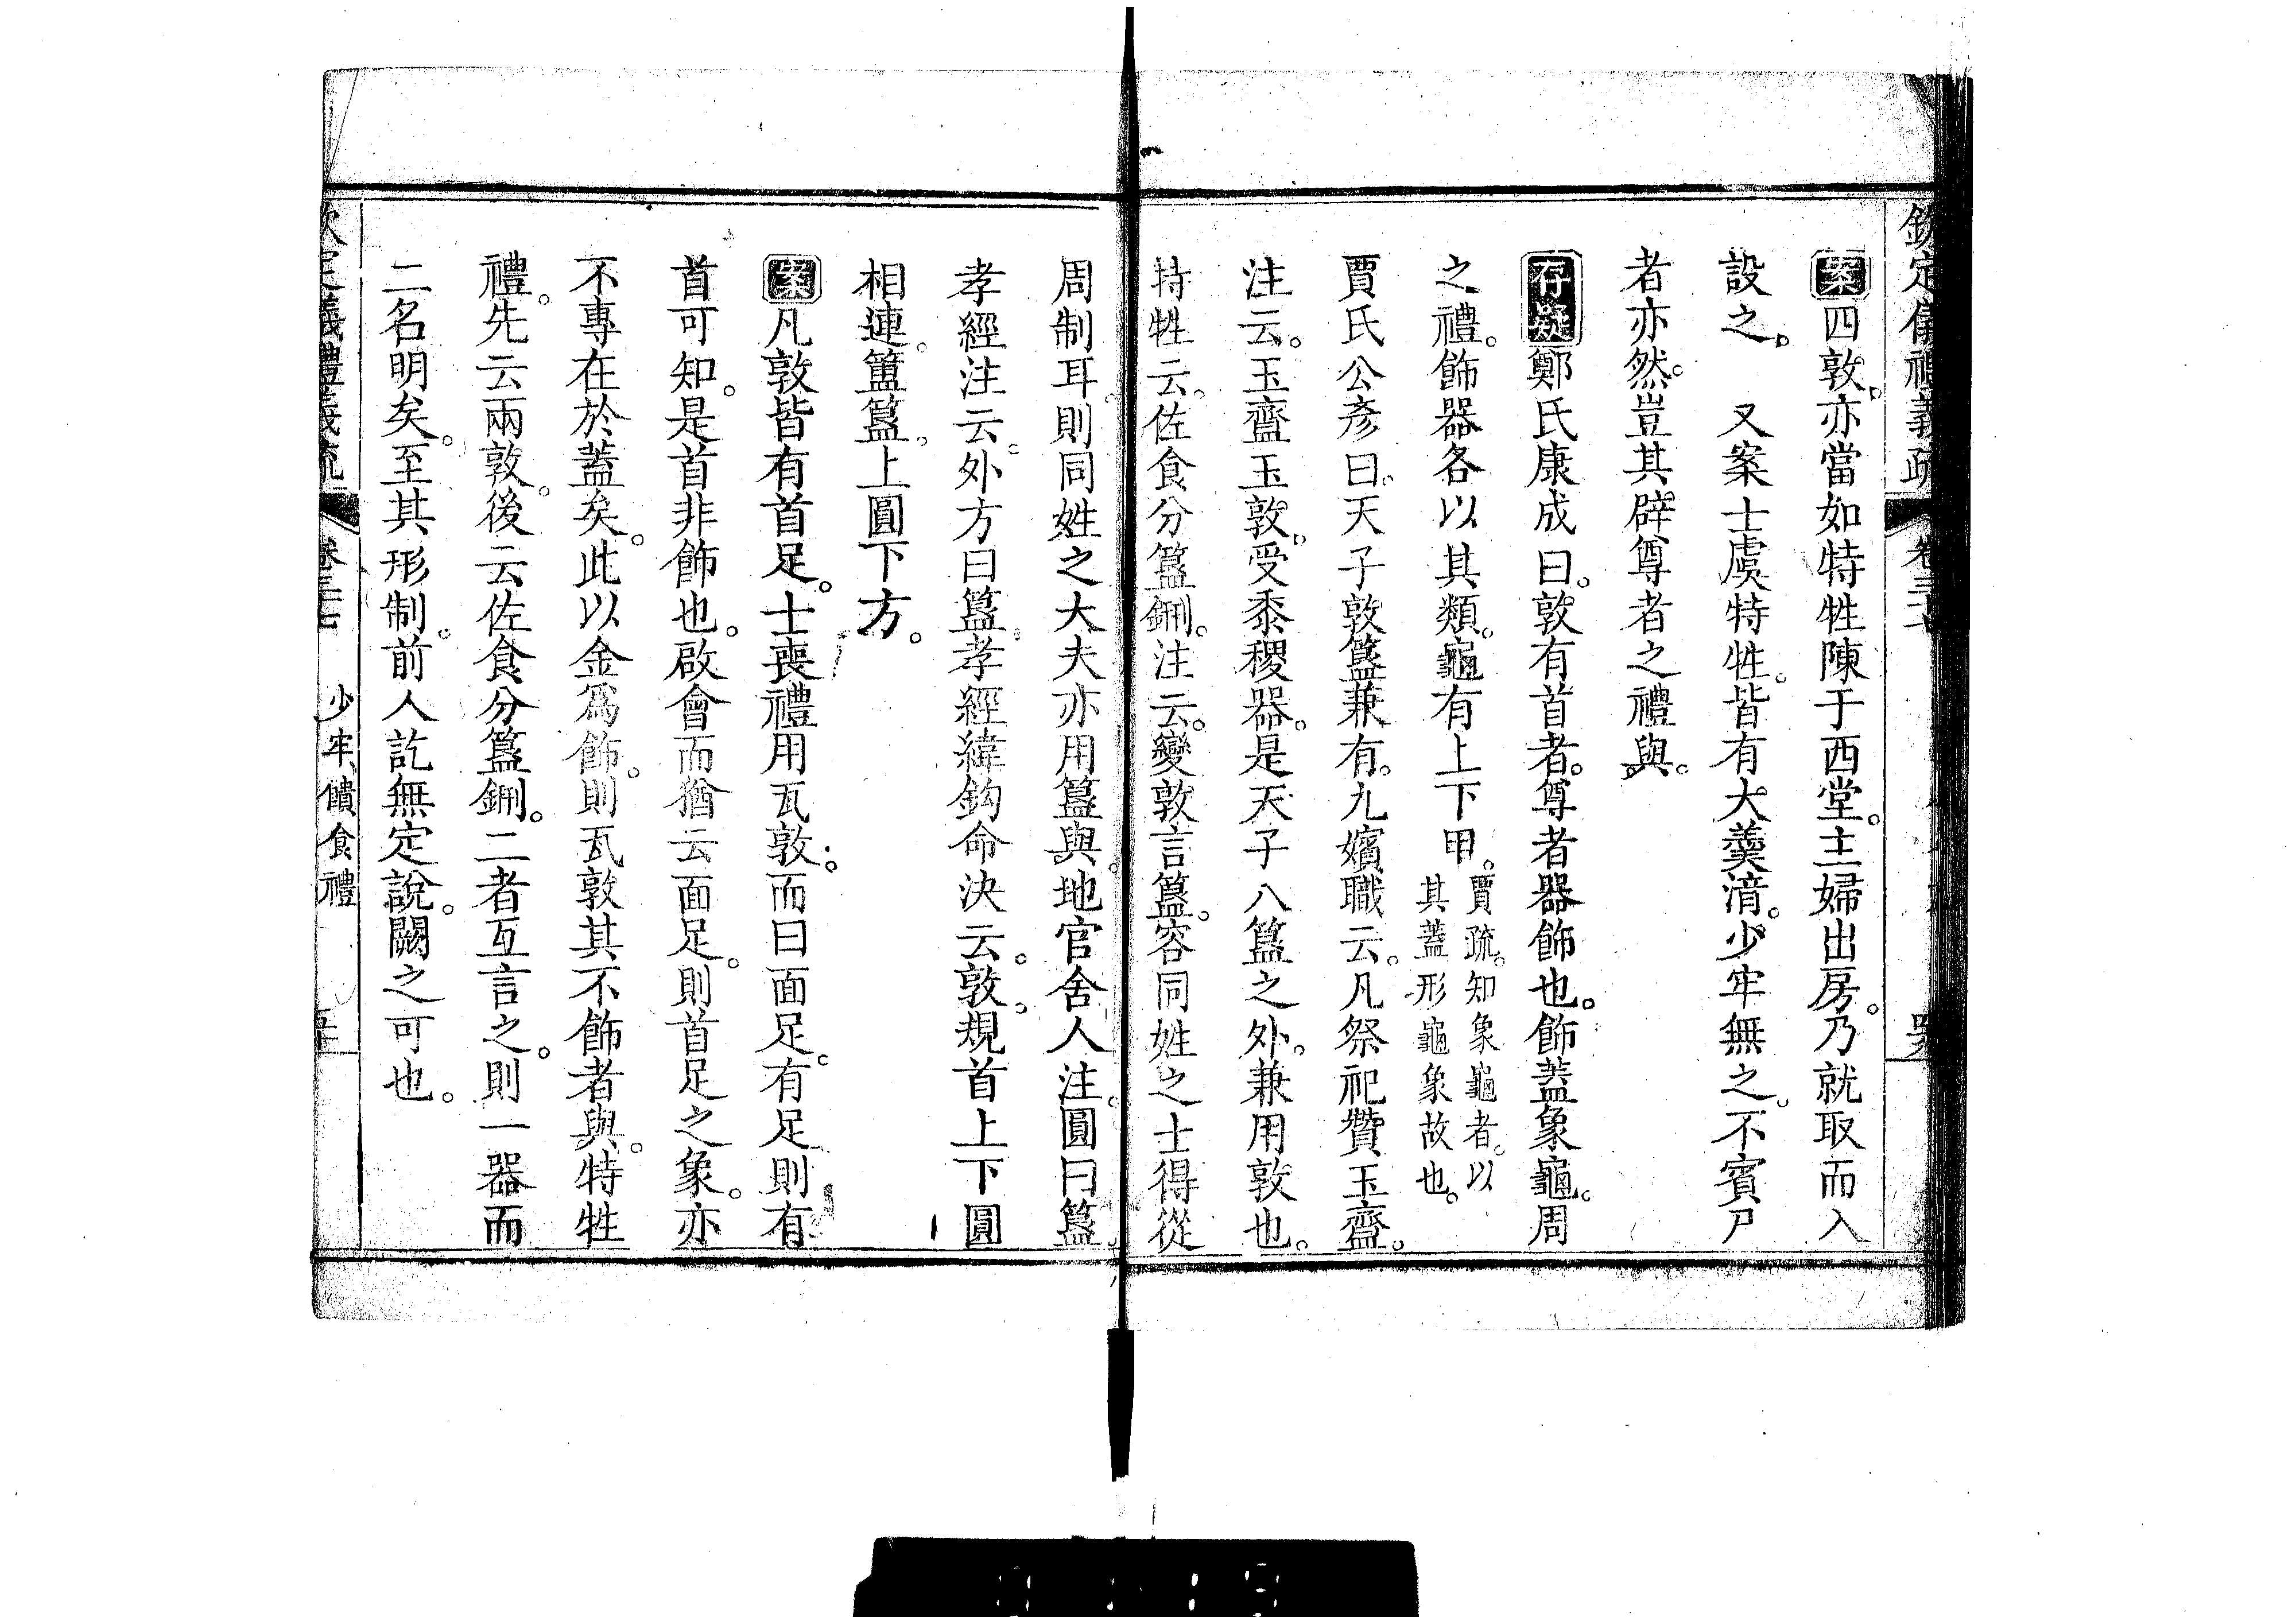 欽定儀禮義疏 卷三十七
案四敦亦當如特牲陳于西堂。主婦出房。乃就取而入
設之。 又案士虞特牲。皆有大羹湆。少牢無之。不賓尸
者亦然。豈其辟尊者之禮與。
存疑鄭氏康成曰。敦有首者。尊者器飾也。飾蓋象龜。周
之禮。飾器各以其類。龜有上下甲。賈疏。知象龜者。以
其蓋形龜象故也。
賈氏公彥曰。天子敦簋兼有。九嬪職云。凡祭祀贊玉齍。
注云。玉齍玉敦。受黍稷器。是天子八簋之外。兼用敦也。
特牲云。佐食分簋鉶。注云。變敦言簋。容同姓之士得從
周制耳。則同姓之大夫亦用簋與。地官舍人注圓曰簋。
孝經注云。外方曰簋。孝經緯鈎命決云。敦。規首上下圓
相連。簠簋。上圓下方。
案凡敦皆有首足。士喪禮用瓦敦。而曰面足。有足則有
首可知。是首非飾也。啟會而猶云面足。則首足之象。亦
不專在於蓋矣。此以金為飾。則瓦敦其不飾者與。特牲
禮。先云兩敦。後云佐食分簋鉶。二者互言之。則一器而
二名明矣。至其形制。前人訖無定說。闕之可也。
欽定儀禮義疏 卷三十七 少牢饋食禮